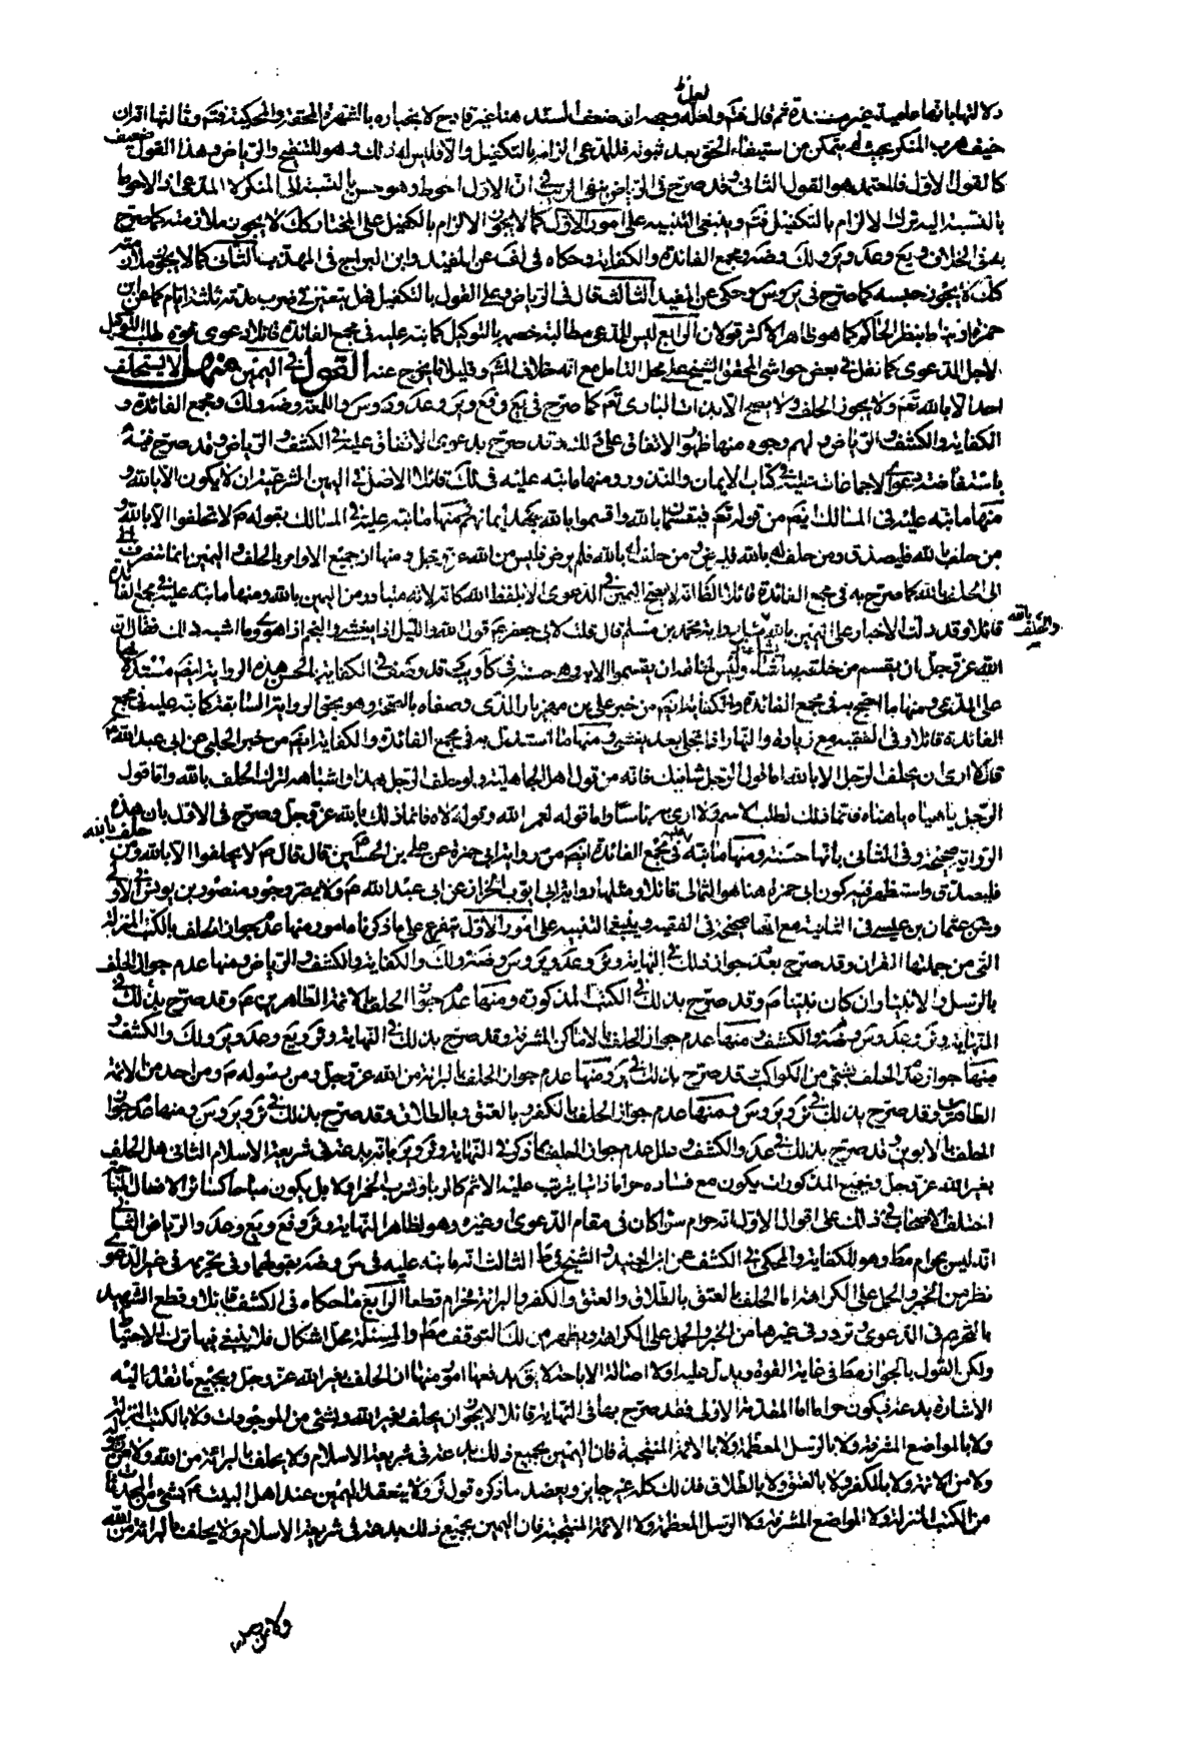 دلالتها بانها عامية غير مسندة ثم قال فتم ولعله وجهه ان ضعف السند هنا غير قادح لانجباره بالشهرة المحققة والمحكية فتم وثالثها ان
خيف هرب المنكر بحيث لم يتمكن من استيفاء الحق بعد ثبوته فللمدعى الزامه بالتكفيل والا فليس له ذلك وهو للتنقيح والرياض وهذا القول ضعيف
كالقول الاول فالمعتمد هو القول الثانى وقد صرح فى الرياض بنفى الريب فى انّ الاول احوط وهو حسن بالنسبة الى المنكر لا المدعى اذ الاحوط
بالنسبة اليه ترك الالزام بالتكفيل فتم وينبغى التنبيه على امور الاول كما لا يجوز الالزام بالكفيل على المختار كك لا يجوز ملازمته كما صرح
به فى الخلاف و يع وعد وير ولك وضه ومجمع الفائدة والكفاية وحكاه فى لف عن المفيد وابن البراج فى المهذب الثانى كما لا يجوز ملازمته
كك لا يجوز حبسه كما صرح فى ير وس وحكى عن المفيد الثالث قال فى الرياض وعلى القول بالتكفيل فهل يتعين فى ضرب مدته ثلثة ايام كما عن ابن
حمزة او يناط بنظر الحاكم كما هو ظاهر الاكثر قولان الرابع ليس للمدعى مطالبة خصمه بالتوكيل كما نبه عليه فى مجمع الفائدة قائلا دعوى قوة طلب التوكيل
لاجل الدعوى كما نقل فى بعض حواشى المحقق الشيخ على محل التامل مع انه خلاف المشهور وقليلا ما يخرج عنه القول فى اليمين منها لا يستحلف
احد الا بالله تعم ولا يجوز الحلف ولا يصح الا بذات البارى تعم كما صرح فى يع وفع وير وعد ود وس واللمعة وضه ولك ومجمع الفائدة و
الكفاية والكشف والرياض و لهم وجوه منها ظهور الاتفاق على ذلك وقد صرح بدعوى الاتفاق عليه فى الكشف والرياض وقد صرح فيه
باستفاضة دعوى الاجماعات عليه فى كتاب الايمان والنذور ومنها ما نبه عليه فى لك قائلا الاصل فى اليمين الشرعية ان لا يكون الا بالله و
منها ما نبه عليه فى المسالك ايضم من قوله تعم فيقسمان بالله واقسموا بالله جهد ايمانهم منها ما نبه عليه فى المسالك بقوله ص لا تحلفوا الا بالله و
من حلف بالله فليصدق ومن حلف له بالله فليرض ومن حلف له بالله فلم يرض فليس من الله عز وجل ومنها ان جميع الاوامر بالحلف واليمين انما تنصرف
الى الحلف بالله كما صرح به فى مجمع الفائدة قائلا الظ انه لا يصح اليمين فى الدعوى الا بلفظ الله كانه لانه متبادر من اليمين بالله ومنها ما نبه عليه فى مجمع الفائدة
قائلا وقد دلت الاخبار على اليمين بالله مثل رواية محمد بن مسلم قال قلت لابى جعفر ع قول الله والليل اذا يغشى والنجم اذا هوى وما اشبه ذلك فقال ان
والحلف بالله
الله عز وجل ان يقسم من خلقه بما شاء وليس لخلقه ان يقسموا الا به وهى حسنة فى كا ويب قد وصف فى الكفاية بالحسن هذه الرواية ايضم مستدلا بها
على المدعى ومنها ما احتج به فى مجمع الفائدة والكفاية ايضم من خبر على بن مهزيار الذى وصفاه بالصحة وهو بمعنى الرواية السابقة كما نبه عليه فى مجمع
الفائدة قائلا وفى الفقيه مع زيادة والنهار اذا تجلى بعد يغشى ومنها ما استدل به فى مجمع الفائدة والكفاية ايضم من خبر الحلبى عن ابى عبد الله ع
قال لا ارى ان يحلف الرجل الا بالله اما قول الرجل لا بل شانيك فانه من قول اهل الجاهلية ولو حلف الرجل بهذا واشباهه لترك الحلف بالله واما قول
الرجل يا هياه يا هناه فانما ذلك لطلب الاسم ولا ارى به باسا واما قوله لعمر الله وقوله لاه فانما ذلك بالله عز وجل وصرح فى الاول بان هذه
الرواية صحيحة وفى الثانى بانها حسنة ومنها ما نبه فى مجمع الفائدة ايضم من رواية ابى حمزة عن على بن الحسين ع قال قال ص لا تحلفوا الا بالله ومن حلف بالله
فليصدق واستظهر فيه كون ابى حمزة هنا هو الثمالى قائلا ومثلها رواية ابى ايوب الخزاز عن ابى عبد الله ع ولا يضر وجود منصور بن يونس فى الاولى
وعثمان بن عيسى فى الثانية مع انها صحيحة فى الفقيه وينبغى التنبيه على امور الاول يتفرع على ما ذكرنا امور منها عدم جواز الحلف بالكتب المنزلة
التى من جملتها القران وقد صرح بعدم جواز ذلك فى النهاية وئر وعد وير وس وضه ولك والكفاية والكشف والرياض ومنها عدم جواز الحلف
بالرسل والانبياء وان كان نبينا ص وقد صرح بذلك فى الكتب المذكورة ومنها عدم جواز الحلف بالائمة الطاهرين ع وقد صرح بذلك فى
النهاية وئر وعد وس وضه والكشف ومنها عدم جواز الحلف بالاماكن المشرفة وقد صرح بذلك فى النهاية وئر ويع وعد وير ولك والكشف و
منها جواز الحلف بشئ من الكواكب قد صرح بذلك فى ير ومنها عدم جواز الحلف بالبرائة من الله عز وجل ومن رسوله ص ومن احد من الائمة
الطاهرين وقد صرح بذلك فى ئر وير وس ومنها عدم جواز الحلف بالكفر وبالعتق وبالطلاق وقد صرح بذلك فى ئر وير وس ومنها عدم جواز
الحلف بالابوين وقد صرح بذلك فى عد والكشف وعلل عدم جواز الحلف بما ذكر فى النهاية وئر وير بانه بدعة فى شريعة الاسلام الثانى هل الحلف
بغير الله عز وجل وبجميع المذكورات يكون مع فساده حراما ذاتيا يترتب عليه الاثم كالربا وشرب الخمر او لا بل يكون مباحا كسائر الافعال المباحة
اختلف الاصحاب فى ذلك على اقوال الاول انه حرام سواء كان فى مقام الدعوى وغيره وهو لظاهر النهاية وئر وفع ويع وعد والرياض الثانى
انه ليس بحرام مط وهو للكفاية والمحكى فى الكشف عن ابن الجنيد والشيخ فى ط الثالث انه ما نبه عليه فى س وضه بقولهما وفى تحريمه فى غير الدعوى
نظر من الخبر والحمل على الكراهة اما الحلف بالعتق بالطلاق والعتق والكفر والبرائة فحرام قطعا الرابع ما حكاه فى الكشف قائلا وقطع الشهيد
بالتحريم فى الدعوى وتردد فى غيرها من الخبر والحمل على الكراهة ويظهر من لك التوقف مط والمسئلة محل اشكال فلا ينبغى فيها ترك الاحتياط
ولكن القول بالجواز مط فى غاية القوة ويدل عليه اولا اصالة الاباحة لا يق يدفعها امور منها ان الحلف بغير الله عز وجل وبجميع ما تقدم اليه
الاشارة بدعة فيكون حراما اما المقدمة الاولى فقد صرح بها فى النهاية قائلا لا يجوز ان يحلف بغير الله ولا بشئ من الموجودات ولا بالكتب المنزلة
ولا بالمواضع المشرفة ولا بالرسل المعظمة ولا بالائمة المنتجبة فان اليمين بجميع ذلك بدعة فى شريعة الاسلام ولا يحلف بالبرائة من الله ولا من رسوله
ولا من الائمة ولا بالكفر ولا بالعتق ولا بالطلاق فان ذلك كله غير جايز ويعضد ما ذكره قول ئر ولا ينعقد اليمين عند اهل البيت ع بشئ من المحدثات
من الكتب المنزلة ولا المواضع المشرفة ولا الرسل المعظمة ولا الائمة المنتجبة فان اليمين بجميع ذلك بدعة فى شريعة الاسلام ولا يحلف بالبرائة من الله
ولا من رسوله